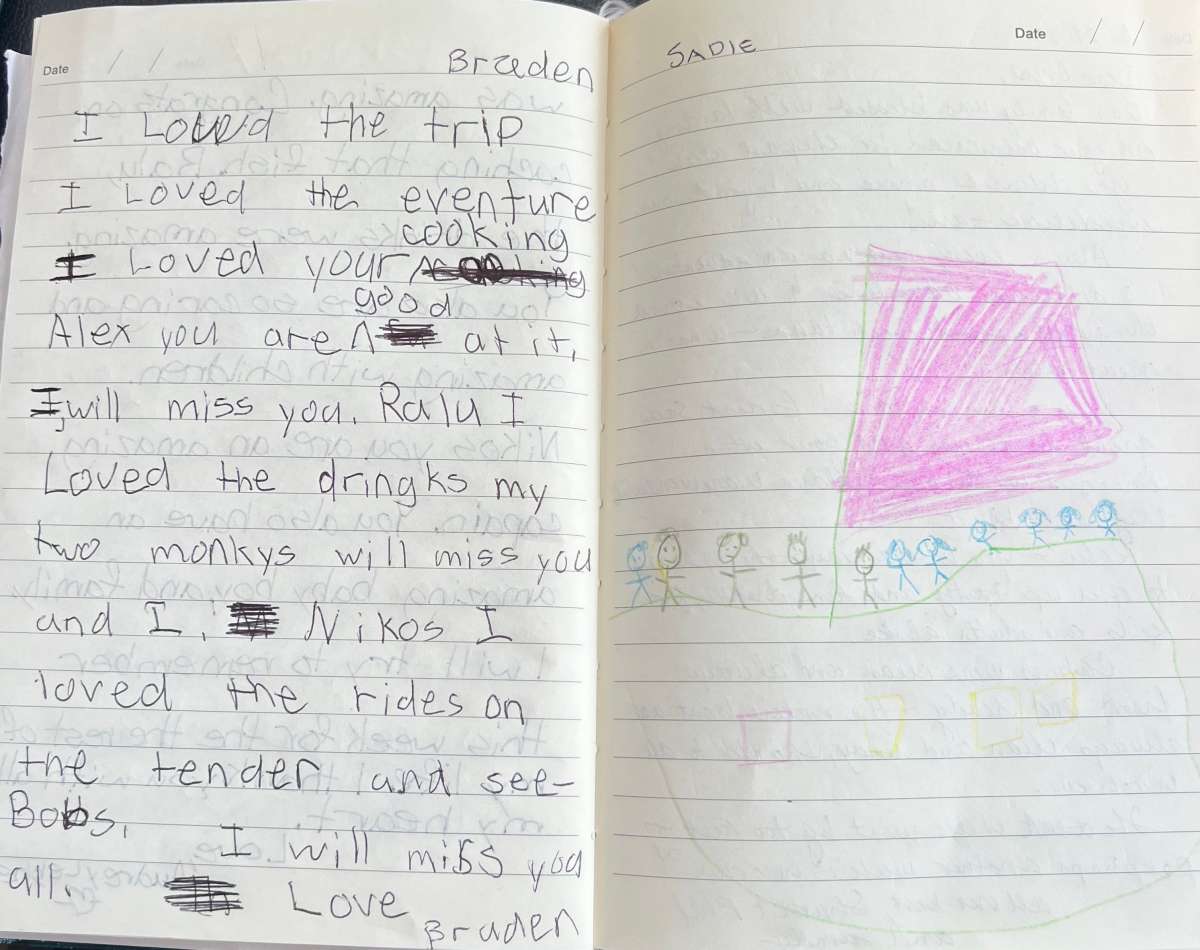 Date / / Braden
I Loved the trip
I Loved the eventure
cooking
I Loved your
good
Alex you are at it,
I, will miss you. Ralu I
Loved the dringks my
two monkys will miss you
and I. Nikos I
loved the rides on
the tender and see-
Bobs,
I will miss you
all.
Love
Braden
SADIE
Date / /